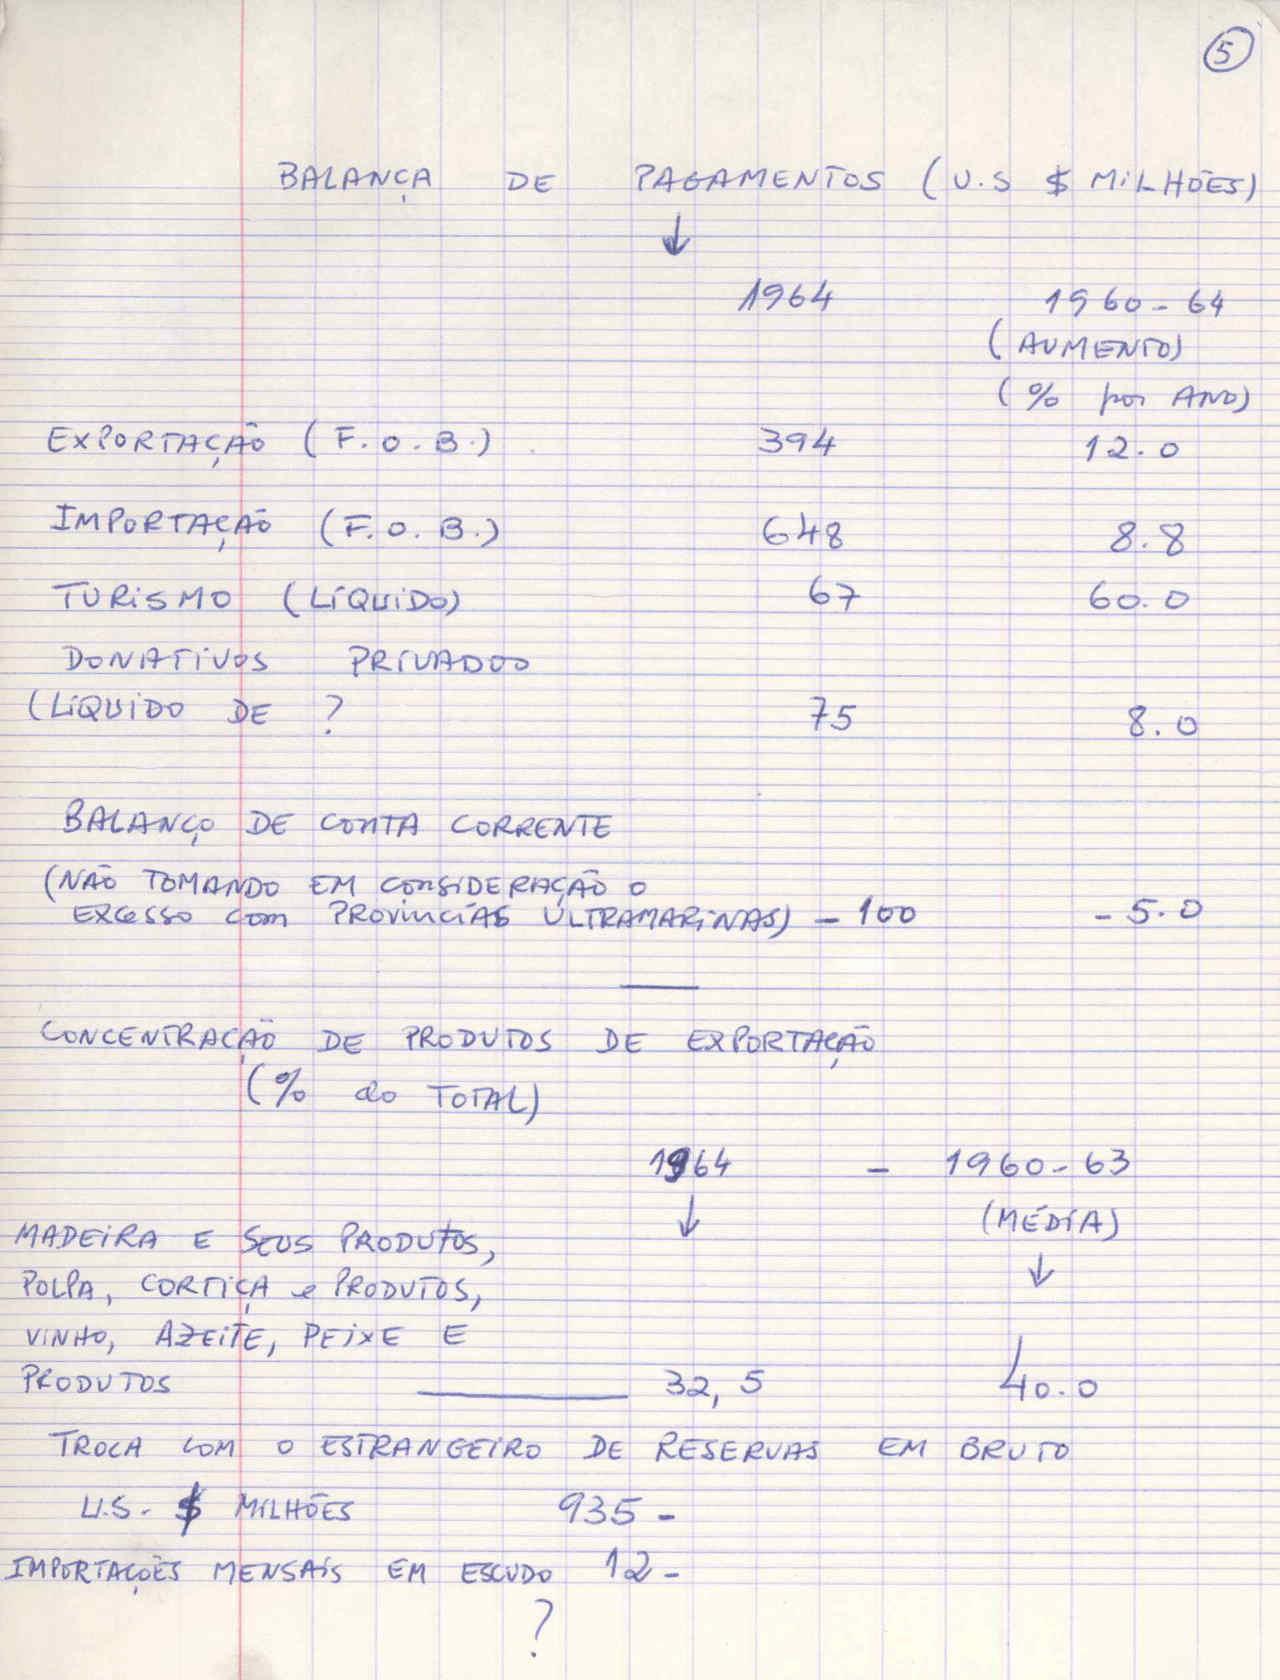 5
BALANÇA DE PAGAMENTOS (U.S $ MILHÕES)
↓
1964 1960-64
(AUMENTO)
(% por ANO)
EXPORTAÇÃO (F.O.B.) 394 12.0
IMPORTAÇÃO (F.O.B.) 648 8.8
TURISMO (LÍQUIDO) 67 60.0
DONATIVOS PRIVADOS
(LÍQUIDO DE ? 75 8.0
BALANÇO DE CONTA CORRENTE
(NÃO TOMANDO EM CONSIDERAÇÃO O
EXCESSO com PROVINCIAS ULTRAMARINAS) - 100 - 5.0
CONCENTRAÇÃO DE PRODUTOS DE EXPORTAÇÃO
(% do TOTAL)
1964 - 1960-63
↓ (MÉDIA)
↓
MADEIRA E SEUS PRODUTOS,
POLPA, CORTIÇA e PRODUTOS,
VINHO, AZEITE, PEIXE E
PRODUTOS 32,5 40.0
TROCA COM O ESTRANGEIRO DE RESERVAS EM BRUTO
U.S. $ MILHÕES 935 -
IMPORTAÇÕES MENSAIS EM ESCUDO 12 -
?